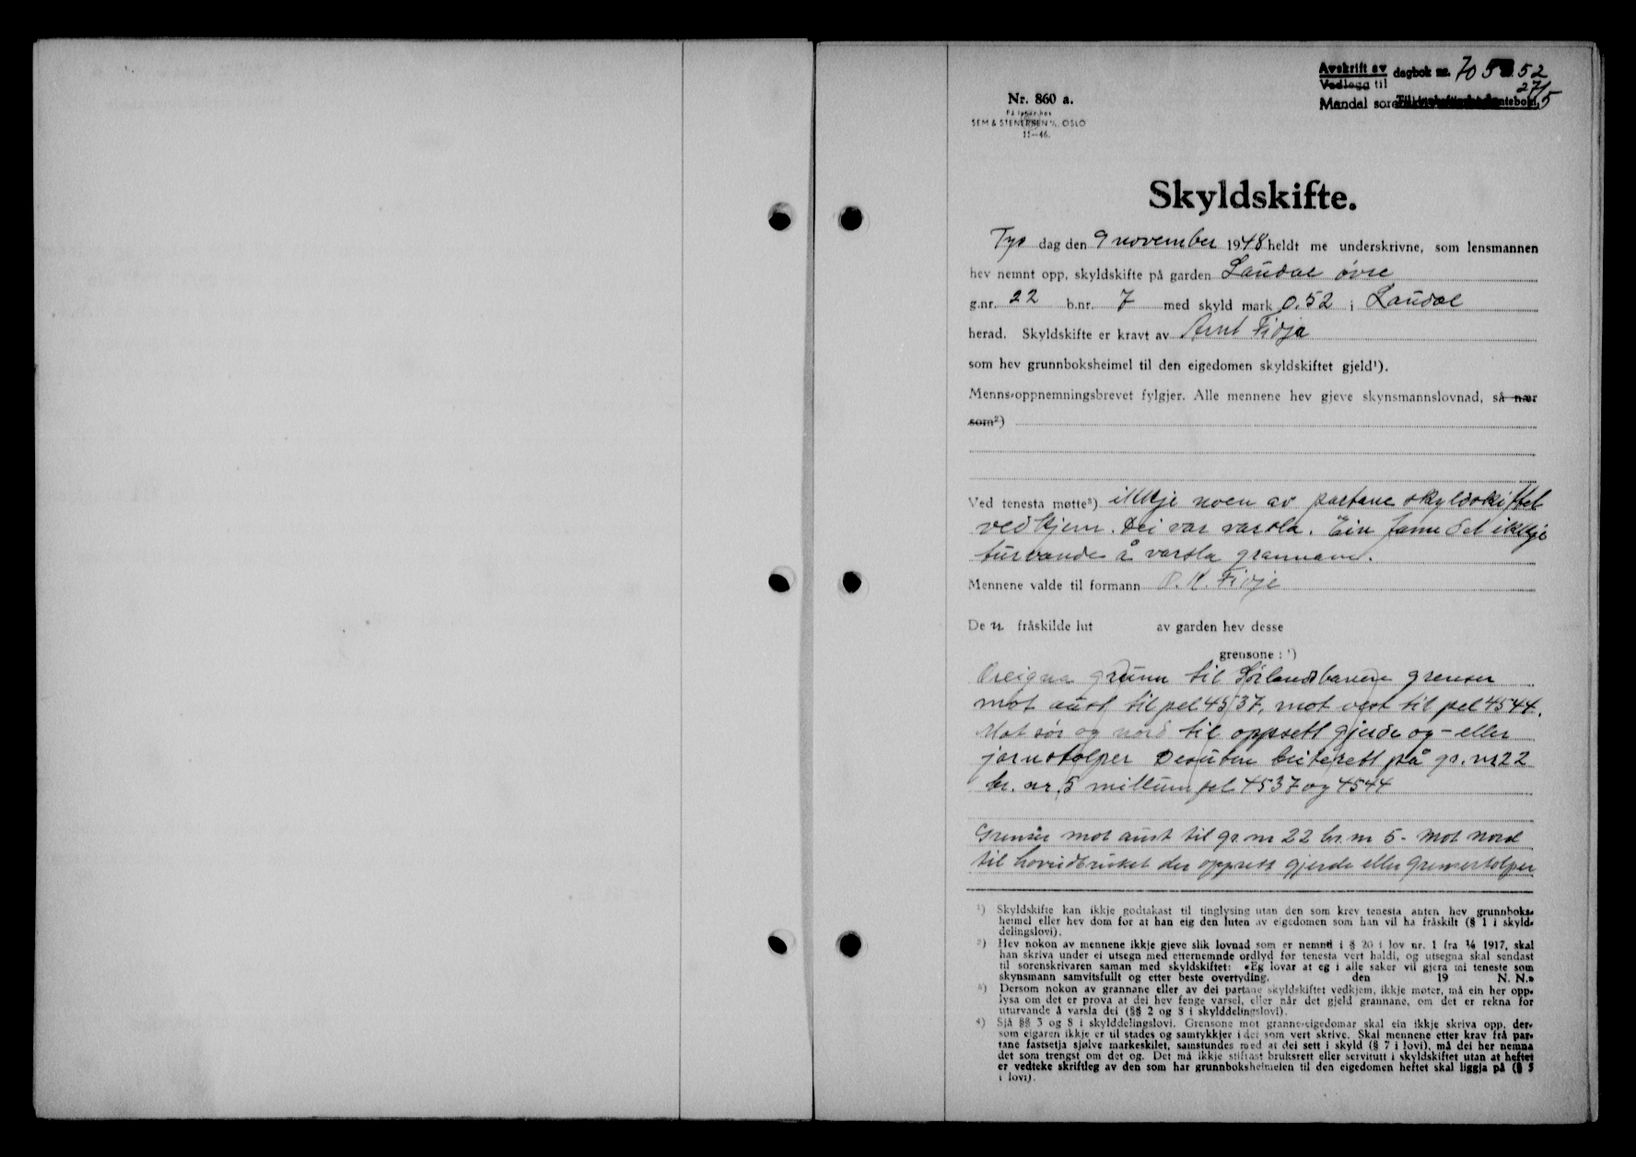 Avskrift av dagbok nr. 705 52
Vedlegg til 27/5
Mandal
Nr. 860 a.
På lager hos
SEM & STENERSEN A/S, OSLO
11—46.
Skyldskifte.
Tys dag den 9 november 1948 heldt me underskrivne, som lensmannen
hev nemnt opp, skyldskifte på garden Laudal övre
g.nr. 22 b.nr. 7 med skyld mark 0.52 i Laudal
herad. Skyldskifte er kravt av Arnt Fidja
som hev grunnboksheimel til den eigedomen skyldskiftet gjeld¹).
Menns-oppnemningsbrevet fylgjer. Alle mennene hev gjeve skynsmannslovnad, så nær
som²)
Ved tenesta møtte³) ikkje noen av partane skyldskiftet
vedkjem. Dei var varsla. Ein fann det ikkje
turvande å varsla grannane.
Mennene valde til formann O. K. Fidje
De n fråskilde lut av garden hev desse
grensone : ⁴)
Oreigna grunn til Sörlandsbanen grenser
mot aust til pel 4537, mot vest til pel 4544.
Mot sör og nord til oppsett gjerde og - eller
jarnstolper Desuten beiterett på gr. nr 22
br. nr. 5 millum pel 4537 og 4544
Grenser mot aust til gr. nr 22 br. nr 5 - mot nord
til hovudbruket der oppsett gjerde eller grensestolper
¹) Skyldskifte kan ikkje godtakast til tinglysing utan den som krev tenesta anten hev grunnboks-
heimel eller hev dom for at han eig den luten av eigedomen som han vil ha fråskilt (§ 1 i skyld-
delingslovi).
²) Hev nokon av mennene ikkje gjeve slik lovnad som er nemnd i § 20 i lov nr. 1 fra 1917, skal
han skriva under ei utsegn med etternemnde ordlyd før tenesta vert haldi, og utsegna skal sendast
til sorenskrivaren saman med skyldskiftet: «Eg lovar at eg i alle saker vil gjera mi teneste som
skynsmann samvitsfullt og etter beste overtyding. den 19 N. N.»
³) Dersom nokon av grannane eller av dei partane skyldskiftet vedkjem, ikkje møter, må ein her opp-
lysa om det er prova at dei hev fenge varsel, eller når det gjeld grannane, om det er rekna for
uturvande å varsla dei (§§ 2 og 8 i skylddelingslovi).
⁴) Sjå §§ 3 og 8 i skylddelingslovi. Grensone mot granne-eigedomar skal ein ikkje skriva opp, der-
som eigaren ikkje er til stades og samtykkjer i det som vert skrive. Skal mennene etter krav frå par-
tane fastsetja sjølve markeskilet, samstundes med at dei sett i skyld (§ 7 i lovi), må dei her nemna
det som trengst om det og. Det må ikkje stiftast bruksrett eller servitutt i skyldskiftet utan at heftet
er vedteke skriftleg av den som har grunnboksheimelen til den eigedomen heftet skal liggja på (§ 5
i lovi).